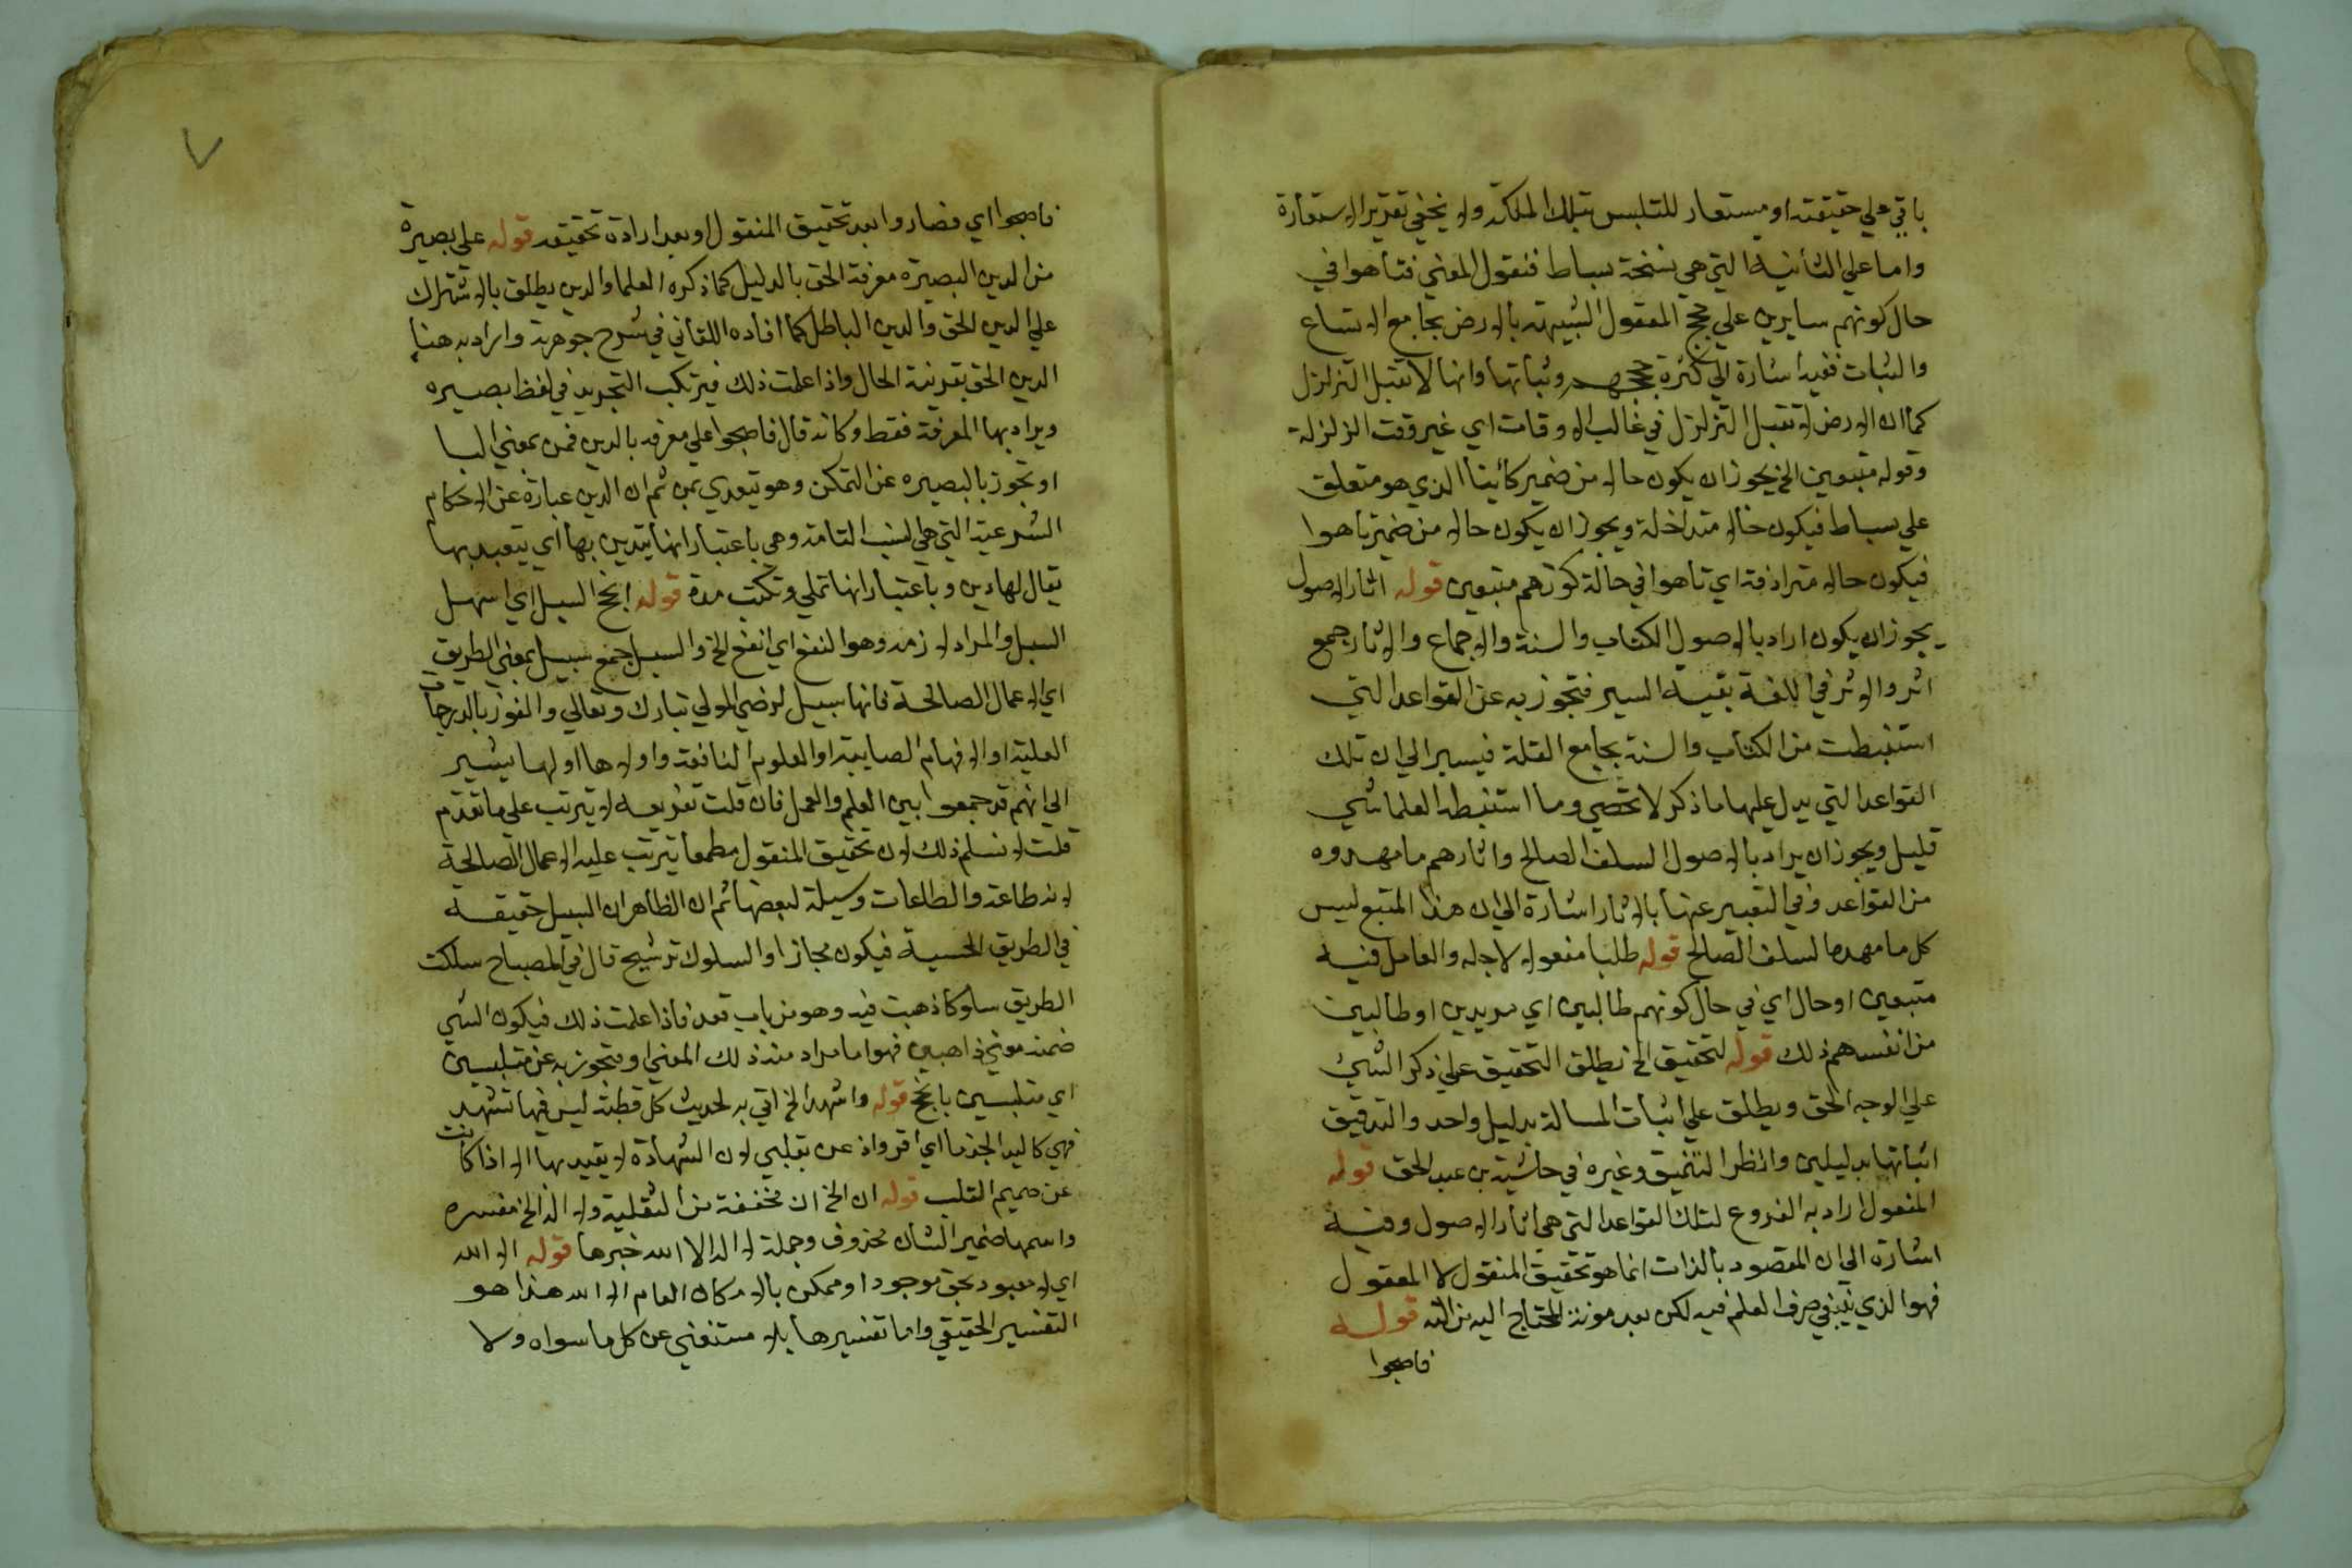 باقي علي حقيقته او مستعار للتلبس بتلك الملكة ولا يخفي تقرير الاستعارة
واما علي الثانية التي هي بنسخة بساط فنقول المعني فتاهوا في
حال كونهم سايرين علي حجج المعقول الشبيهة بالارض بجامع الاتساع
والثبات ففيه اشارة الي كثرة حججهم وثباتها وانها لا تقبل التزلزل
كما ان الارض لا تقبل التزلزل في غالب الاوقات اي غير وقت الزلزلة
وقوله متبعين الخ يجوز ان يكون حالا من ضمير كائينا الذي هو متعلق
علي بساط فيكون حالا متداخلة ويجوز ان يكون حالا من ضمير تاهوا
فيكون حالا مترادفة اي تاهوا في حالة كونهم متبعين قوله اثار الاصول
يجوز ان يكون اراد بالاصول الكتاب والسنة والاجماع والاثار جمع
اثر والاثر في اللغة بقية السير فتجوز به عن القواعد التي
استنبطت من الكتاب والسنة بجامع القلة فيسير الي ان تلك
القواعد التي يدل عليها ما ذكر لا تحصي وما استنبطه العلما شي
قليل ويجوز ان يراد بالاصول السلف الصالح واثارهم ما مهدوه
من القواعد وفي التعبير عنها بالاثار اشارة الي ان هذا المتبع ليس
كل ما مهده السلف الصالح قوله طلبا مفعولا لاجله والعامل فيه
متبعين او حال اي في حال كونهم طالبين اي مريدين او طالبين
من انفسهم ذلك قوله لتحقيق الخ يطلق التحقيق علي ذكر الشيئ
علي الوجه الحق ويطلق علي اثبات المسالة بدليل واحد والتدقيق
اثباتها بدليلين وانظر التنميق وغيره في حاشية بن عبد الحق قوله
المنقول اراد به الفروع لتلك القواعد التي هي اثار الاصول وفيه
اشارة الي ان المقصود بالذات انما هو تحقيق المنقول لا المعقول
فهو الذي ينبغي صرف العلم فيه لكن بعد مونة المحتاج اليه من الاله قوله
فاصبحوا
٧
فاصبحوا اي فصاروا بعد تحقيق المنقول او بعد ارادة تحقيقه قوله علي بصيرة
من الدين البصيرة معرفة الحق بالدليل كما ذكره العلما والدين يطلق بالاشتراك
علي الدين الحق والدين الباطل كما افاده اللقاني في شرح جوهرته واراد به هنا
الدين الحق بقرينة الحال واذا علمت ذلك فيرتكب التجريد في لفظ بصيره
ويراد بها المعرفة فقط وكانه قال فاصبحوا علي معرفة بالدين فمن بمعني البا
او تجوز بالبصيره عن التمكن وهو يتعدي بمن ثم ان الدين عبارة عن الاحكام
الشرعية التي هي النسب التامة وهي باعتبار انها يتدين بها اي يتعبد بها
يقال لها دين وباعتبار انها تملي وتكتب ملة قوله انجح السبل اي اسهل
السبل والمراد لازمه وهو النفع اي انفع الخ والسبل جمع سبيل بمعني الطريق
اي الاعمال الصالحة فانها سبيل لرضي المولي تبارك وتعالي والفوز بالدرجات
العلية او الافهام الصايبة او العلوم النافعة واولاها اولها يشير
الي انهم قد جمعوا بين العلم والعمل فان قلت تفريعه لا يترتب علي ما تقدم
قلت لا نسلم ذلك لان تحقيق المنقول مطمعا يترتب عليه الاعمال الصالحة
لانه طاعة والطاعات وسيلة لبعضها ثم ان الظاهر ان السبيل حقيقة
في الطريق الحسية فيكون مجازا والسلوك ترشيح قال في المصباح سلكت
الطريق سلوكا ذهبت فيه وهو من باب قعد فاذا علمت ذلك فيكون الشي
ضمنه معني ذاهبين فهو اما مراد منه ذلك المعني او متجوز به عن متلبسين
اي متلبسين بانجح قوله واشهد الخ اتي به لحديث كل خطبة ليس فيها تشهد
فهي كاليد الجذما اي اقر واذعن بقلبي لان الشهادة لا يعتد بها الا اذا كانت
عن صميم القلب قوله ان الخ ان مخففة من الثقلية ولا اله الخ مفسره
واسمها ضمير الشان محذوف وجملة لا اله الا الله خبرها قوله الا الله
اي لا معبود بحق موجودا وممكن بالامكان العام الا الله هذا هو
التفسير الحقيقي واما تفسيرها بلا مستغني عن كل ما سواه ولا